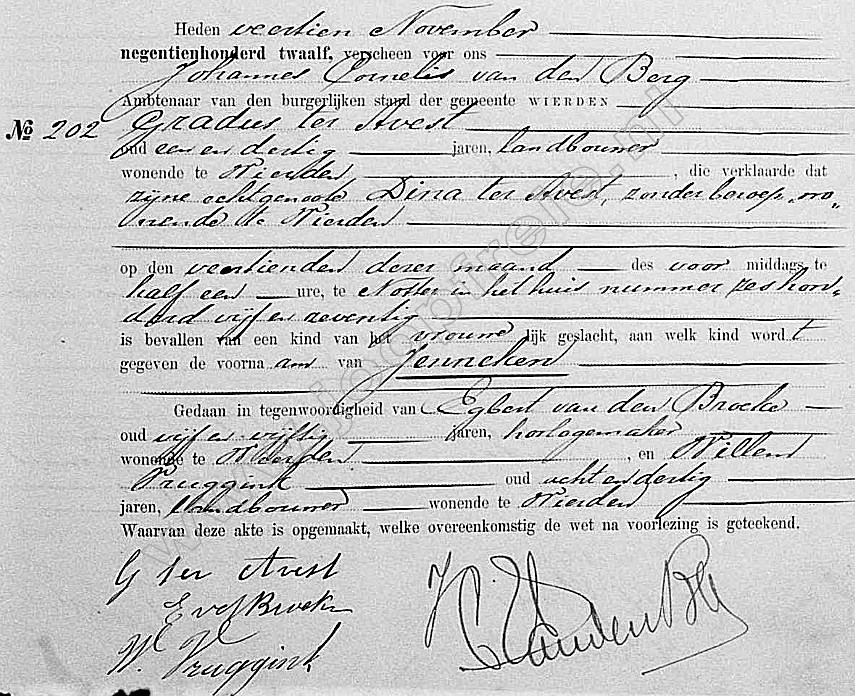 Heden veertien November
negentienhonderd twaalf, verscheen voor ons
Johannes Cornelis van den Berg
Ambtenaar van den burgerlijken stand der gemeente WIERDEN
№ 202 Gradus ter Avest
oud een en dertig jaren, landbouwer
wonende te Wierden, die verklaarde dat
zijne echtgenoote Dina ter Avest, zonder beroep, wo„
nende te Wierden
op den veertienden dezer maand des voor middags te
half een ure, te Notter in het huis nummer zes hon„
derd vijf en zeventig
is bevallen van een kind van het vrouwe lijk geslacht, aan welk kind wordt
gegeven de voornaam van Jenneken
Gedaan in tegenwoordigheid van Egbert van den Broeke
oud vijf en vijftig jaren, horlogemaker
wonende te Wierden, en Willem
Vruggink oud acht en dertig
jaren, landbouwer wonende te Wierden
Waarvan deze akte is opgemaakt, welke overeenkomstig de wet na voorlezing is geteekend.
G ter Avest
E vd Broeke
W. Vruggink
J C VandenBerg